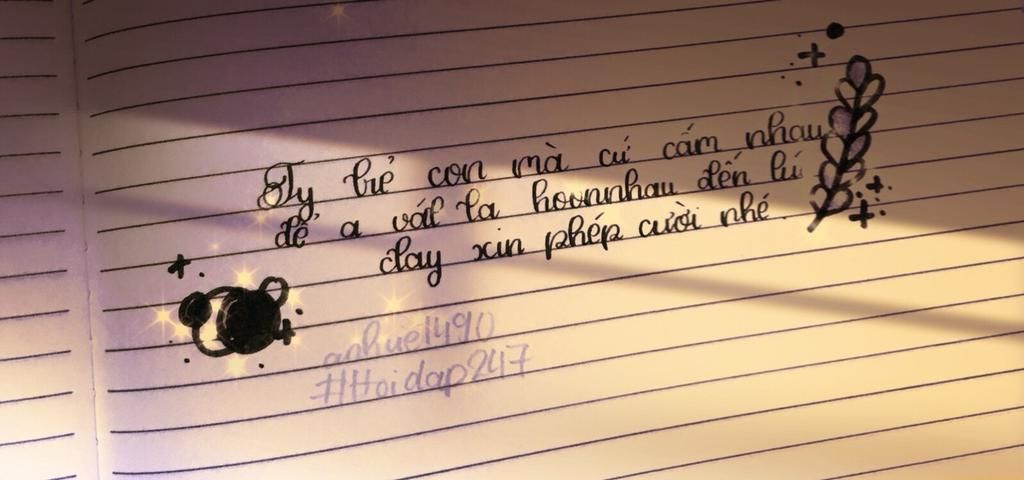 Ty trẻ con mà cứ cấm nhau
để a vát ta hounnhau đến lú
day xin phép cười nhé
anhue1490
#Hoidap247